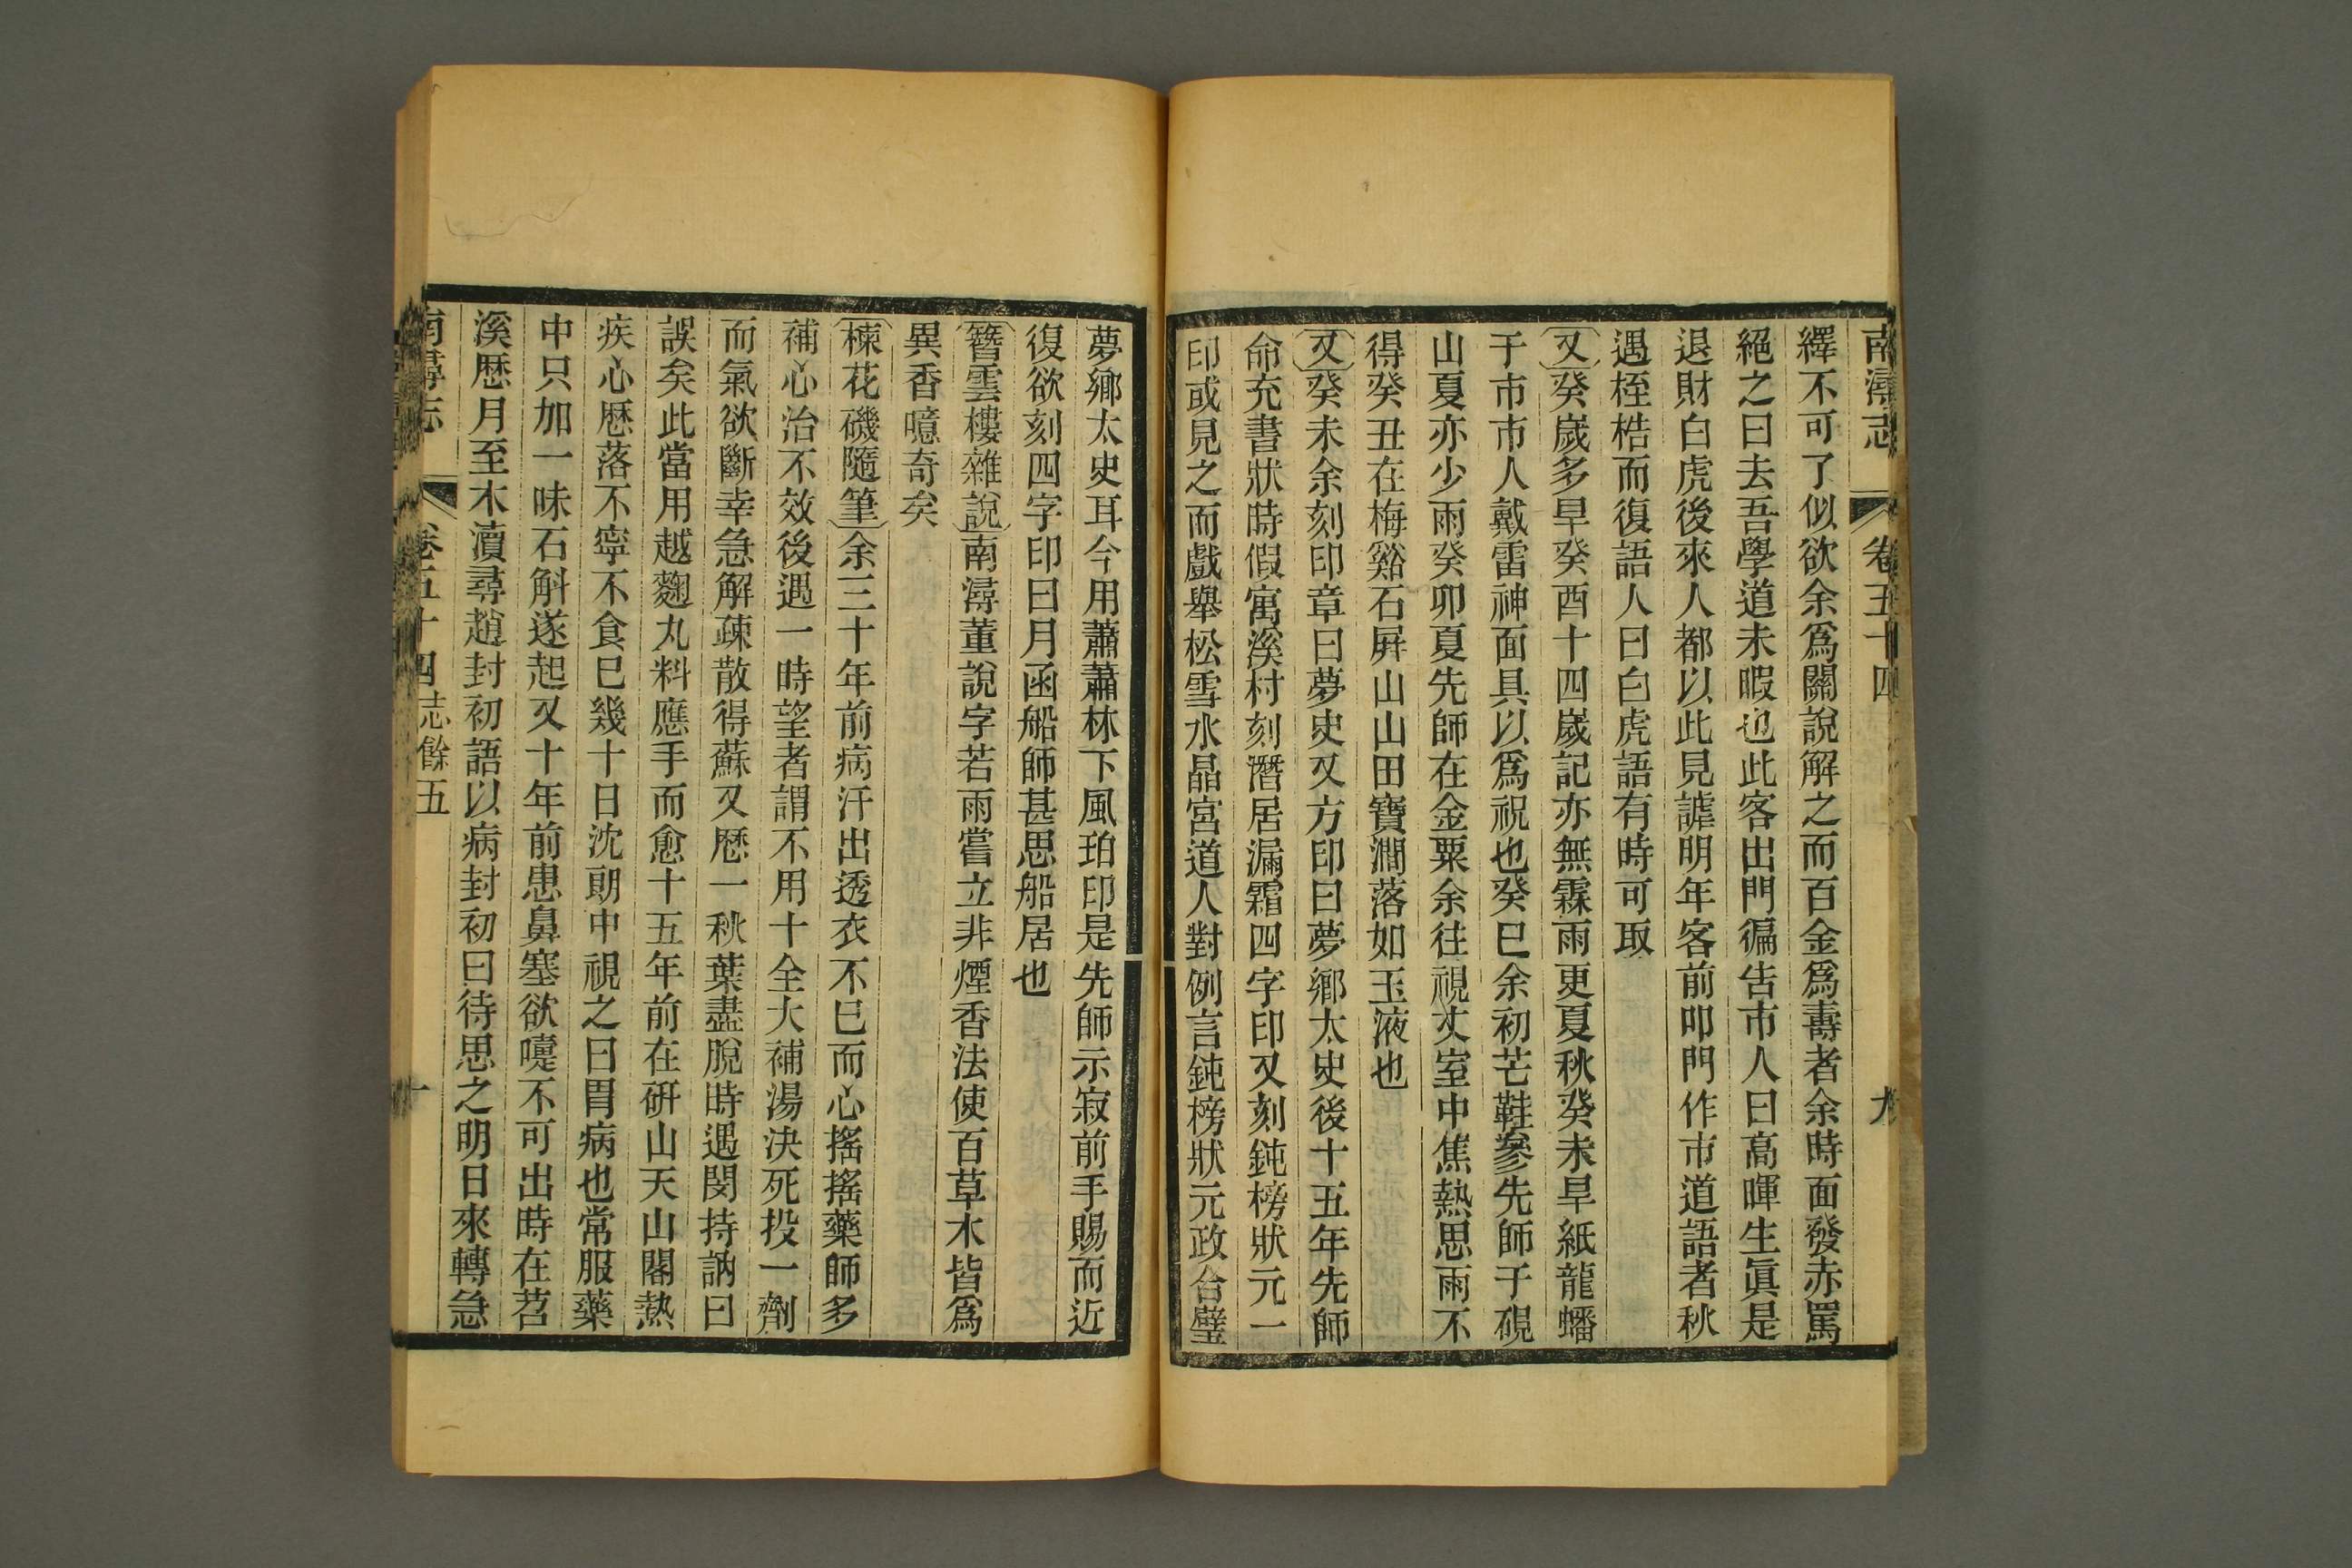 南潯志　卷五十四　九
繹不可了似欲余爲關說解之而百金爲壽者余時面發赤罵
絕之曰去吾學道未暇也此客出門徧告市人曰高暉生眞是
退財白虎後來人都以此見謔明年客前叩門作市道語者秋
遇桎梏而復語人曰白虎語有時可取
又癸歲多旱癸酉十四歲記亦無霖雨更夏秋癸未旱紙龍蟠
于市市人戴雷神面具以爲祝也癸巳余初芒鞋參先師于硯
山夏亦少雨癸卯夏先師在金粟余往視丈室中焦熱思雨不
得癸丑在梅谿石屛山山田寶澗落如玉液也
又癸未余刻印章曰夢史又方印曰夢鄉太史後十五年先師
命充書狀時假寓溪村刻潛居漏霜四字印又刻鈍榜狀元一
印或見之而戲舉松雪水晶宮道人對例言鈍榜狀元政合璧
夢鄉太史耳今用蕭蕭林下風珀印是先師示寂前手賜而近
復欲刻四字印曰月函船師甚思船居也
簪雲樓雜說南潯董說字若雨嘗立非煙香法使百草木皆爲
異香噫奇矣
楝花磯隨筆余三十年前病汗出透衣不已而心搖搖藥師多
補心治不效後遇一時望者謂不用十全大補湯決死投一劑
而氣欲斷幸急解疎散得蘇又歷一秋葉盡脫時遇閔持訥曰
誤矣此當用越麴丸料應手而愈十五年前在硏山天山閣熱
疾心歷落不寧不食已幾十日沈朗中視之曰胃病也常服藥
中只加一味石斛遂起又十年前患鼻塞欲嚏不可出時在苕
溪歷月至木瀆尋趙封初語以病封初曰待思之明日來轉急
南潯志　卷五十四志餘五　十